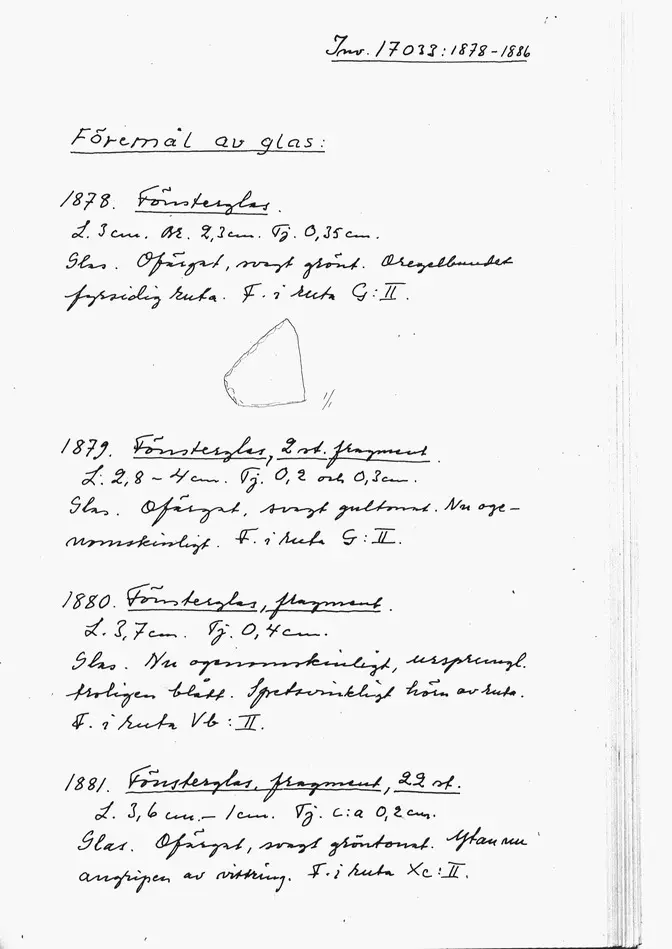 Inv. 17033:1878-1886
Föremål av glas:
1878. Fönsterglas.
L. 3 cm. Br. 2,3 cm. Tj. 0,35 cm.
Glas. Ofärgat, svagt grönt. Oregelbundet
fyrsidig ruta. F. i ruta G:II.
1/1
1879. Fönsterglas, 2 st. fragment.
L. 2,8 - 4 cm. Tj. 0,2 och 0,3 cm.
Glas. Ofärgat, svagt gultonat. Nu oge-
nomskinligt. F. i ruta G:II.
1880. Fönsterglas, fragment.
L. 3,7 cm. Tj. 0,4 cm.
Glas. Nu ogenomskinligt, ursprungl.
troligen blått. Spetsvinkligt hörn av ruta.
F. i ruta Vb:II.
1881. Fönsterglas, fragment, 22 st.
L. 3,6 cm. - 1 cm. Tj. c:a 0,2 cm.
Glas. Ofärgat, svagt gröntonat. Ytan nu
angripen av vittring. F. i ruta Xc:II.